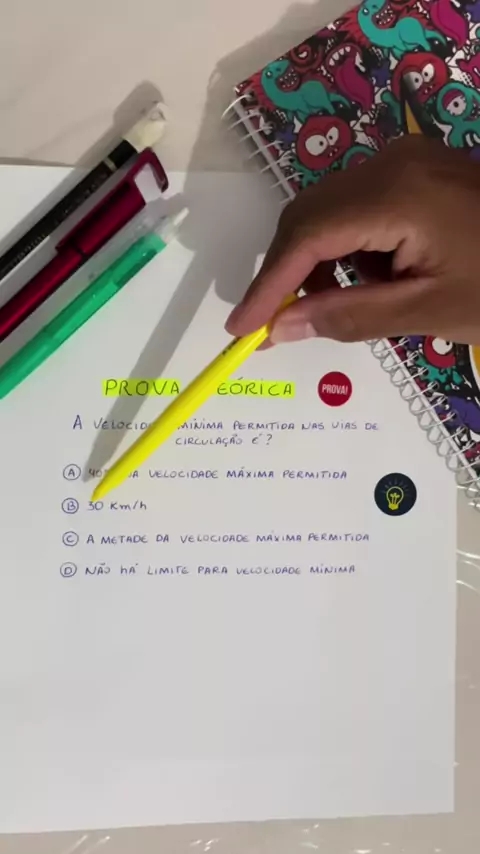 PROVA EÓRICA
PROVA!
A VELOCID MÍNIMA PERMITIDA NAS VIAS DE
CIRCULAÇÃO É?
A 40% DA VELOCIDADE MÁXIMA PERMITIDA
B 30 Km/h
C A METADE DA VELOCIDADE MÁXIMA PERMITIDA
D NÃO HÁ LIMITE PARA VELOCIDADE MÍNIMA